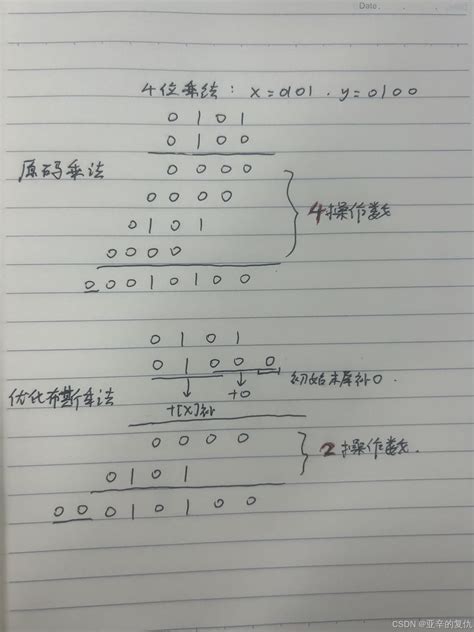 Date.
4位乘法: x=0101. y=0100
0 1 0 1
0 1 0 0
原码乘法
0 0 0 0
0 0 0 0
0 1 0 1
0 0 0 0
4操作数
0 0 0 1 0 1 0 0
0 1 0 1
0 1 0 0 0
初始末尾补0.
优化布斯乘法
+[X]补
+0
0 0 0 0
0 1 0 1
2操作数.
0 0 0 1 0 1 0 0
CSDN @亚辛的复仇